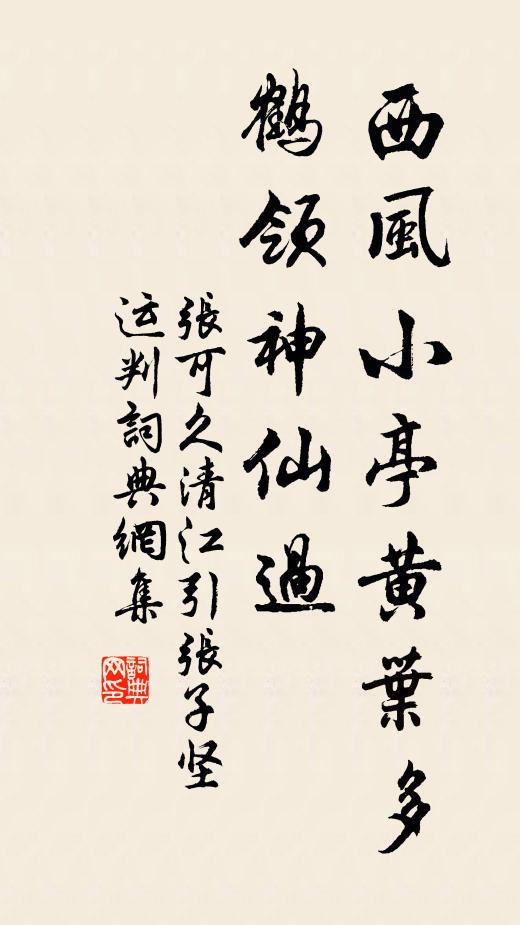 西風小亭黄葉多
鶴領神仙過
張可久清江引張子坚
运判詞典網集
詞典网印